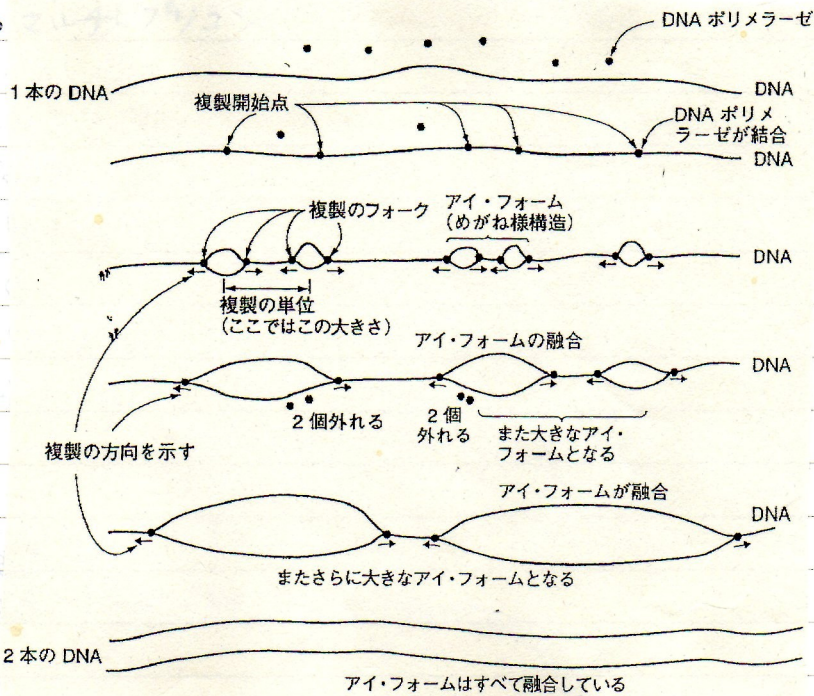 DNA ポリメラーゼ
1本の DNA
DNA
複製開始点
DNA ポリメ
ラーゼが結合
DNA
複製のフォーク
アイ・フォーム
(めがね様構造)
DNA
複製の単位
(ここではこの大きさ)
アイ・フォームの融合
DNA
2個外れる
2個
外れる
また大きなアイ・
フォームとなる
複製の方向を示す
アイ・フォームが融合
DNA
またさらに大きなアイ・フォームとなる
2本の DNA
アイ・フォームはすべて融合している